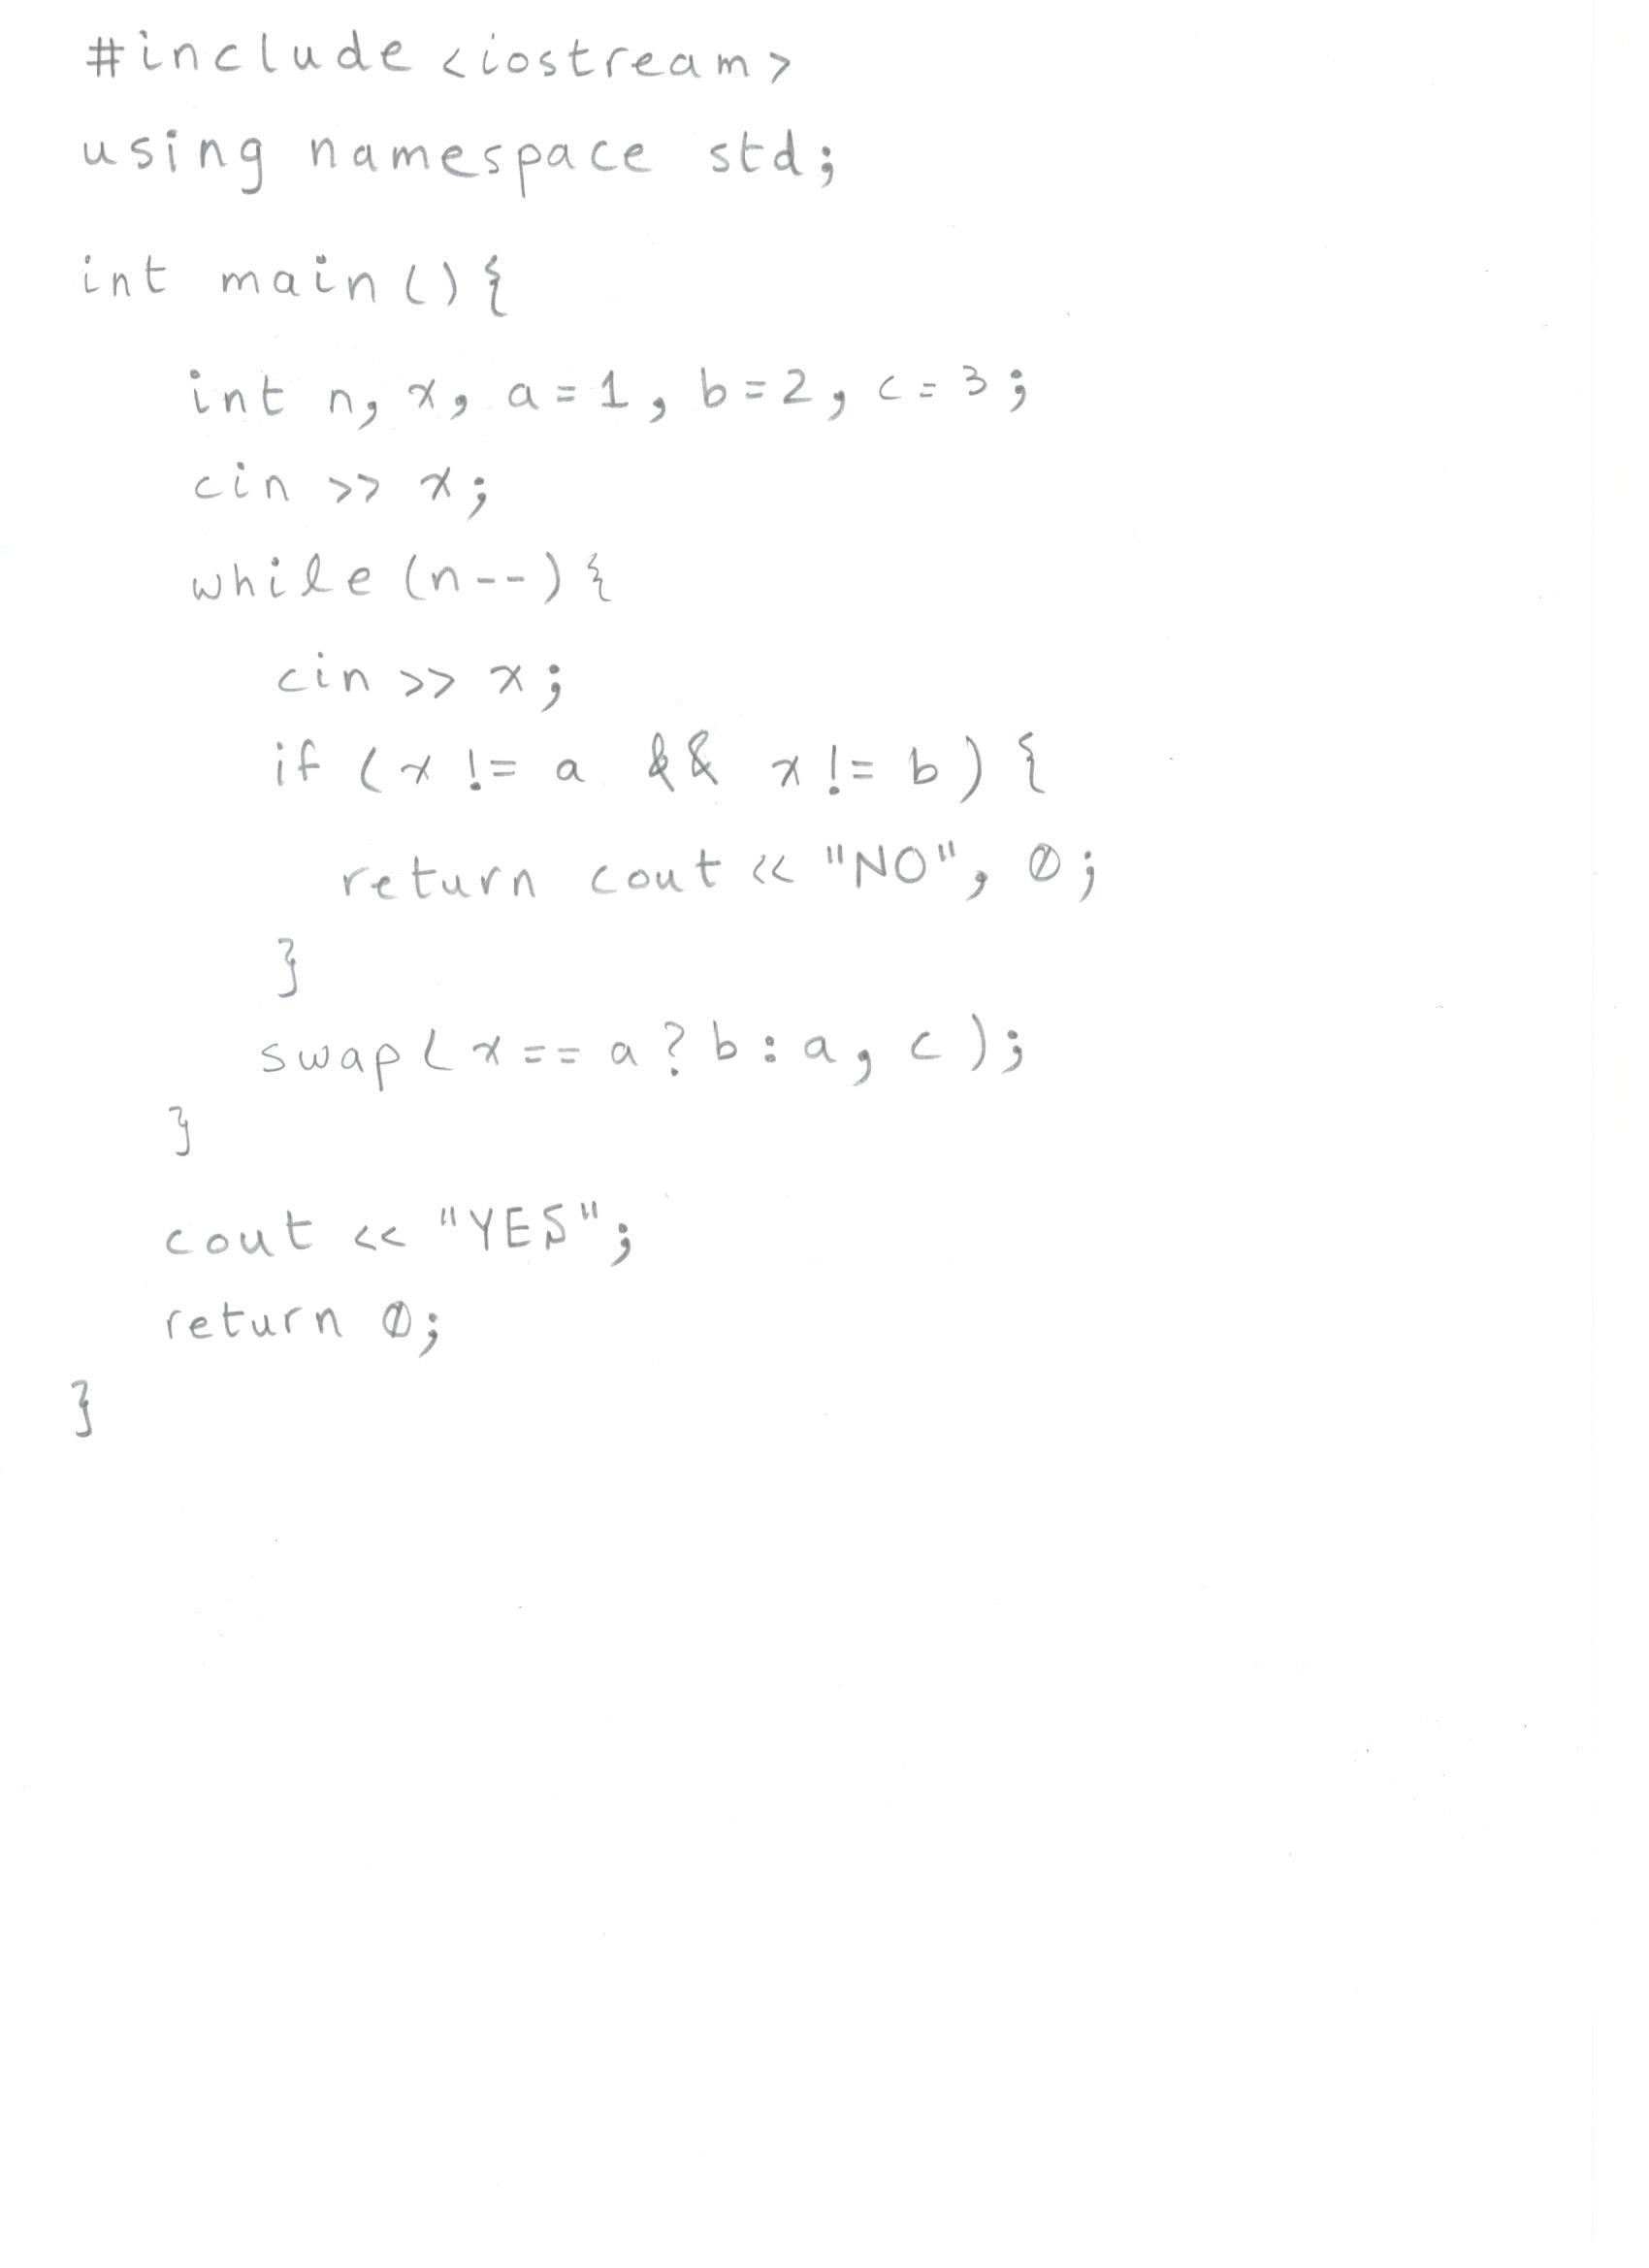 #include <iostream>
using namespace std;
int main(){
int n, x, a=1, b=2, c=3;
cin >> x;
while (n--){
cin >> x;
if (x != a && x != b) {
return cout << "NO", 0;
}
swap(x==a?b:a, c);
}
cout << "YES";
return 0;
}